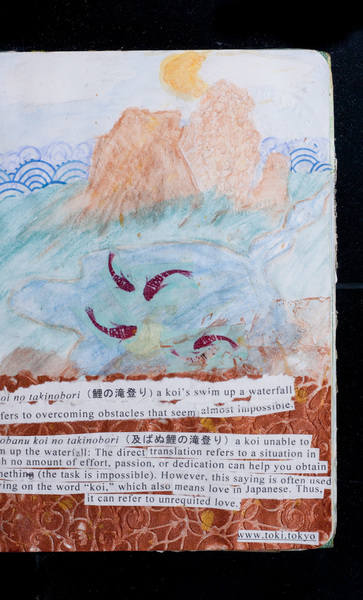 oi no takinobori (鯉の滝登り) a koi's swim up a waterfall
fers to overcoming obstacles that seem almost impossible.
obanu koi no takinobori (及ばぬ鯉の滝登り) a koi unable to
m up the waterfall: The direct translation refers to a situation in
h no amount of effort, passion, or dedication can help you obtain
nething (the task is impossible). However, this saying is often used
ying on the word "koi," which also means love in Japanese. Thus,
it can refer to unrequited love.
www.toki.tokyo